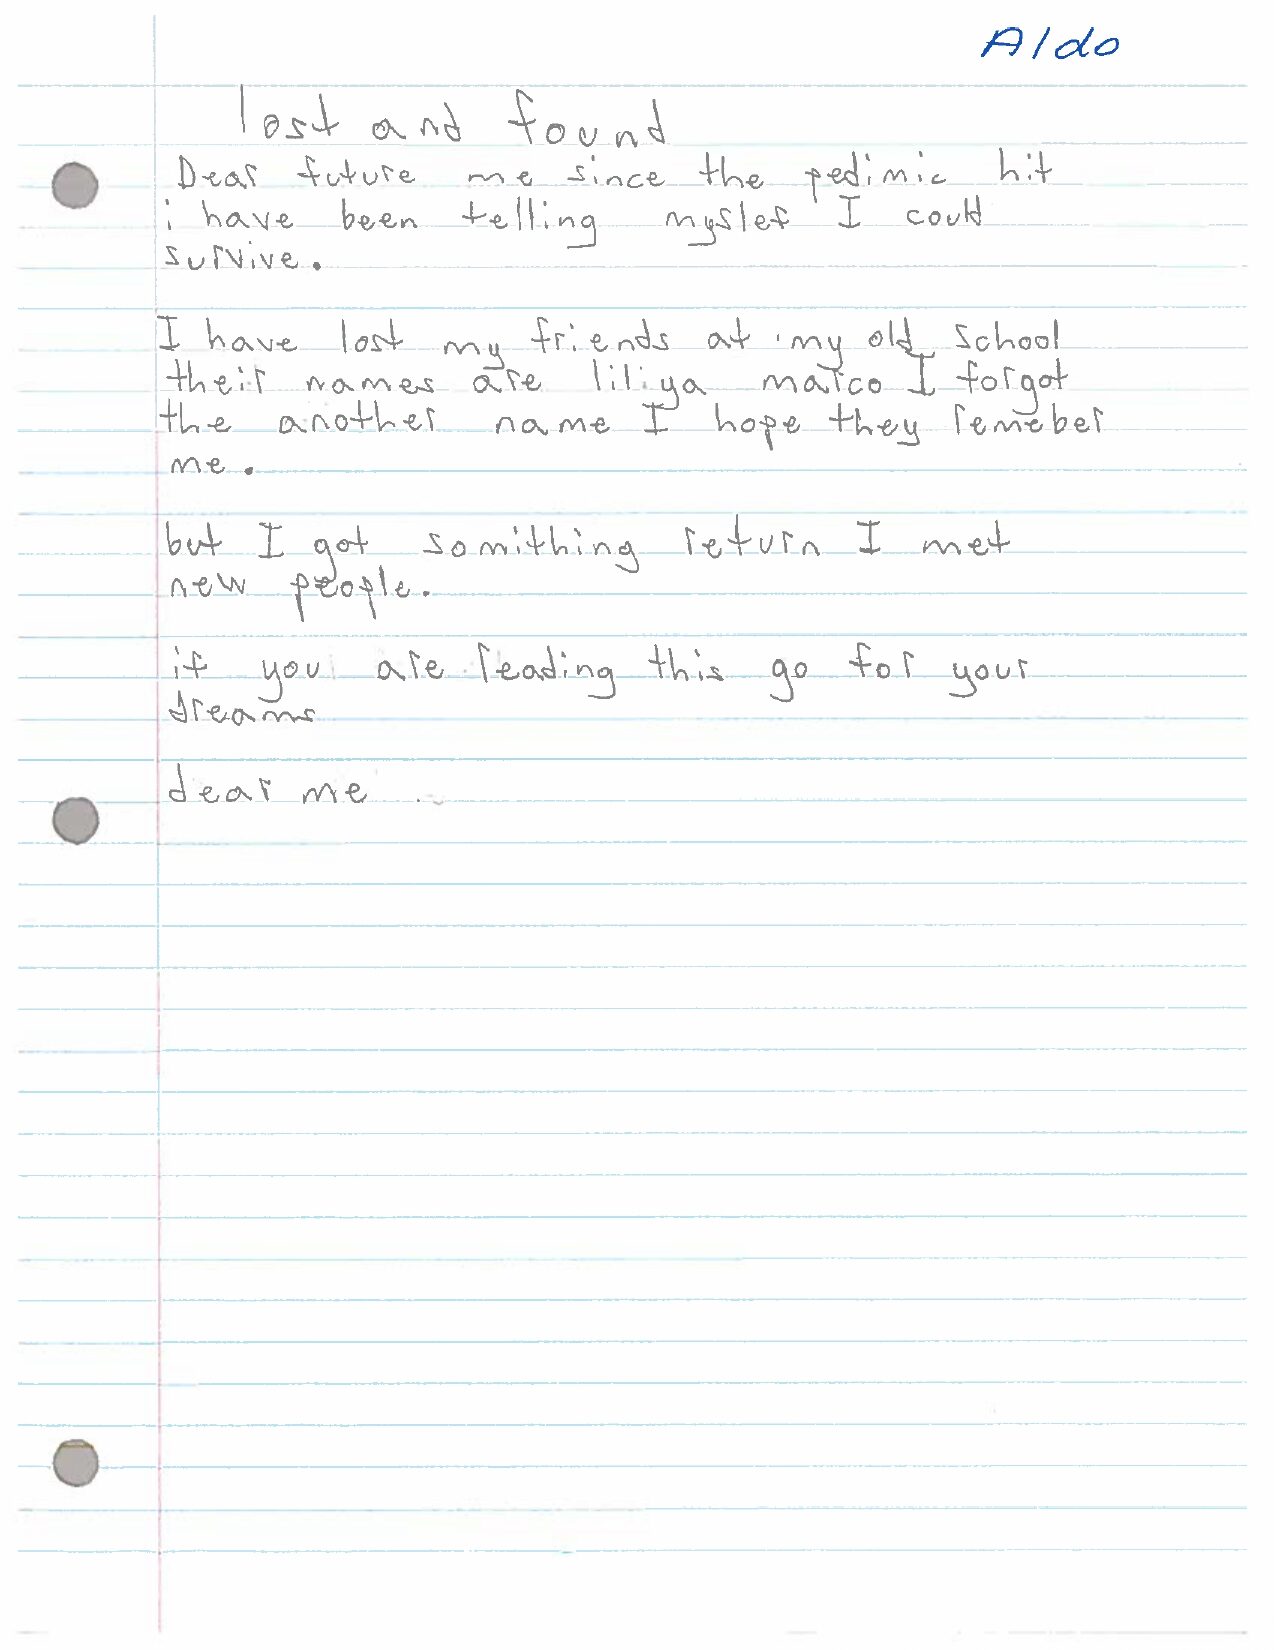 Aldo
lost and found
Dear future me since the pedimic hit
i have been telling myslef I could
survive.
I have lost my friends at my old school
their names are liliya marco I forgot
the another name I hope they remeber
me.
but I got somithing return I met
new people.
if you are reading this go for your
dreams
dear me